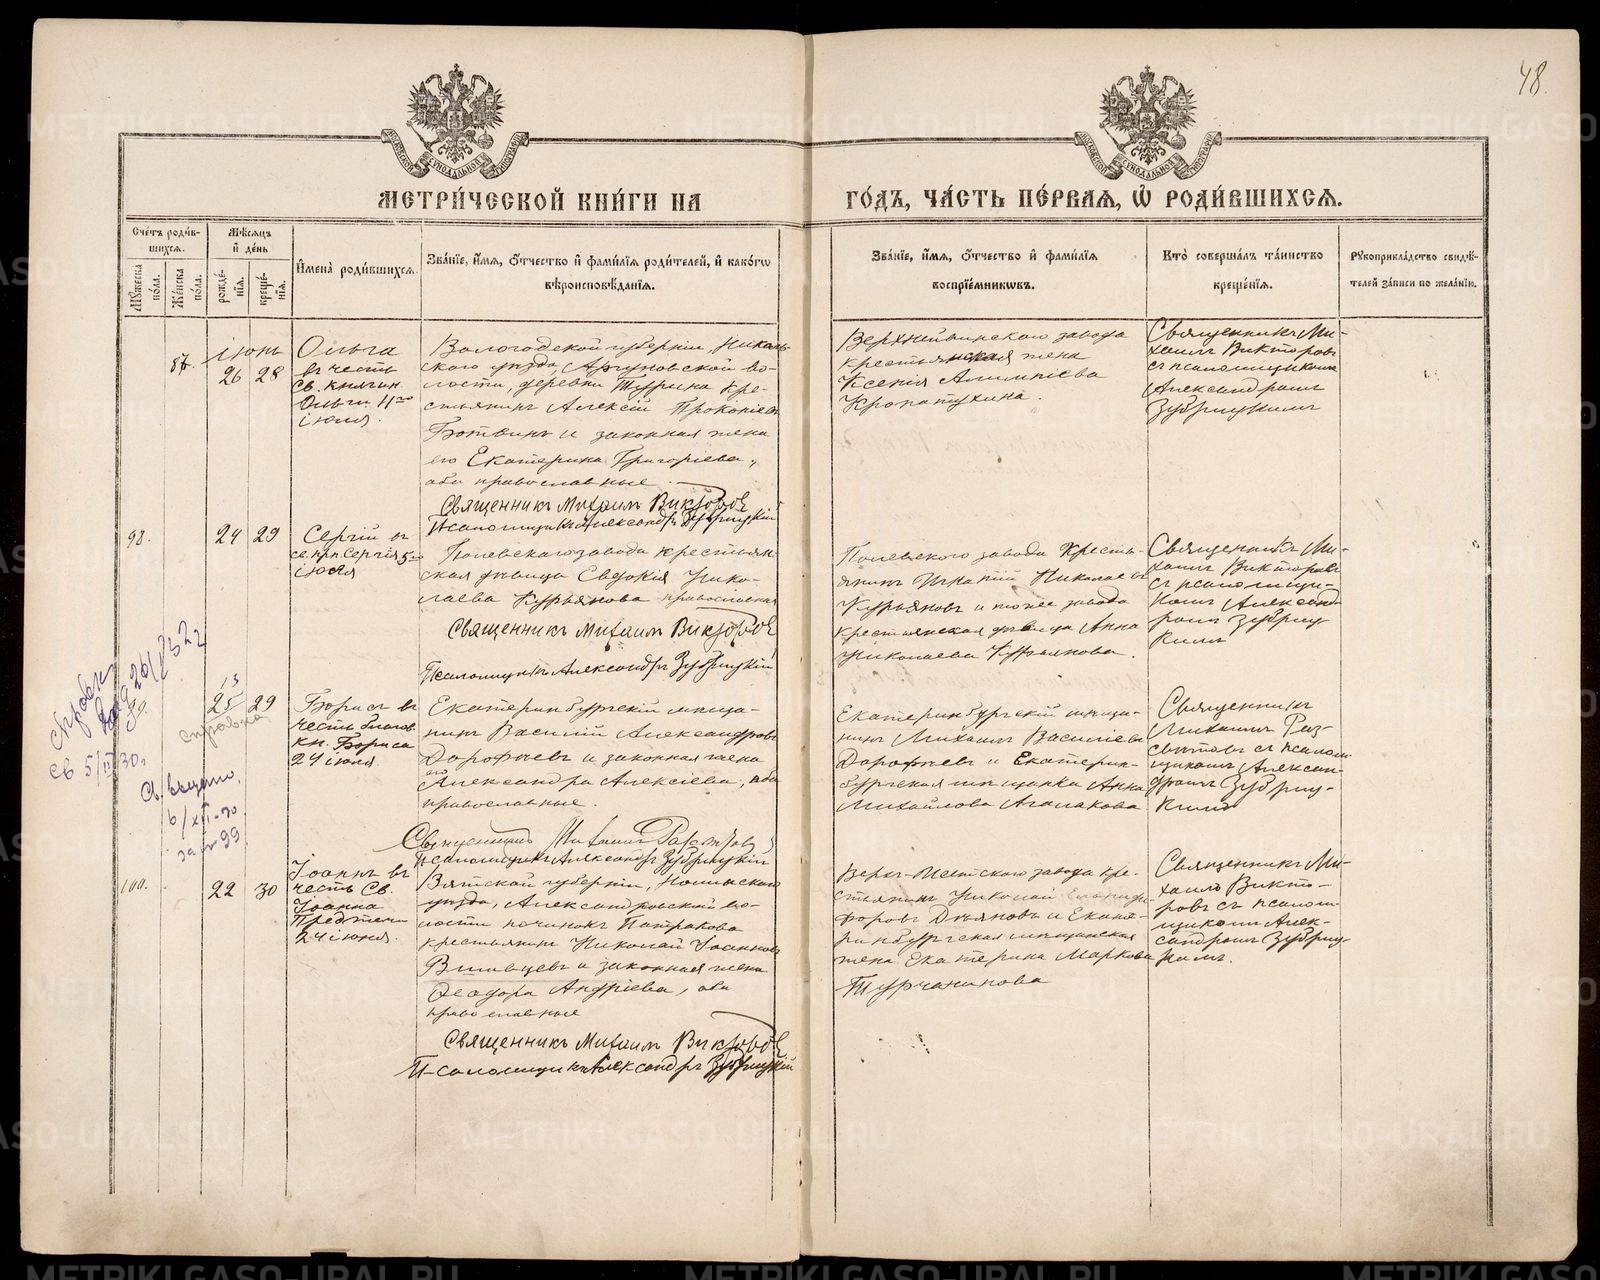 48
МЕТРИ́ЧЕСКОЙ КНИ́ГИ НА ГО́ДЪ, ЧА́СТЬ ПЕ́РВАѦ, Ѡ РОДИ́ВШИХСѦ.
Сче́тъ роди́вшихсѧ.
Мꙋ́жеска по́ла.
Же́нска по́ла.
Мѣ́сѧцъ и҆ де́нь
рожде́нїѧ.
креще́нїѧ.
И҆мена̀ роди́вшихсѧ.
Зва́нїе, и҆́мѧ, ѻ҆́тчество и҆ фами́лїѧ роди́телей, и҆ како́гѡ
вѣроисповѣ́данїѧ.
Зва́нїе, и҆́мѧ, ѻ҆́тчество и҆ фами́лїѧ
воспрїе́мникѡвъ.
Кто̀ соверша́лъ та́инство
креще́нїѧ.
Рꙋкоприкла́дство свидѣ́телей за́писи по жела́нїю.
87.
Іюнь
26 28
Ольга
въ честь
св. княгин.
Ольги 11го
іюля.
Вологодской губерніи, Николь-
скаго уѣзда, Аргуновской во-
лости, деревни Турина кре-
стьянинъ Алексій Прокопіевъ
Ботвинъ и законная жена
его Екатерина Григоріева,
оба православные.
Священникъ Михаилъ Викторовъ
Псаломщикъ Александръ Зубрицкій
Верхнейвинскаго завода
крестьянская жена
Ксенія Алимпіева
Кропатухина.
Священникъ Ми-
хаилъ Викторовъ
съ псаломщикомъ
Александромъ
Зубрицкимъ
98.
24 29
Сергій въ
че. прп Сергія 5го
іюля
Полевскаго завода крестьян-
ская дѣвица Евдокія Нико-
лаева Курьянова православная
Священникъ Михаилъ Викторовъ
Псаломщикъ Александръ Зубрицкій
Полевского завода кресть-
янинъ Николаевъ
Курьяновъ и тогоже завода
крестьянская дѣвица Анна
Николаева Курьянова.
Священникъ Ми-
хаилъ Викторовъ
съ псаломщи-
комъ Александ-
ромъ Зубриц-
кимъ
99.
25 29
справка
Борисъ въ
честь благов.
кн. Бориса
24 іюля
Екатеринбургскій мѣща-
нинъ Василій Александровъ
Дорофеевъ и законная жена
его Александра Алексіева, оба
православные.
Священникъ Михаилъ
Псаломщикъ Александръ Зубрицкій
Екатеринбургскій мѣща-
нинъ Михаилъ Василіевъ
Дорофеевъ и Екатерин-
бургская мѣщанка Анна
Михайлова Агалакова
Священникъ
Михаилъ Раз-
съ псалом-
щикомъ Алексан-
дромъ Зубриц-
кимъ
св 5/III 30г
6/XII-30
за № 99
100.
22 30
Іоаннъ въ
честь Св.
Іоанна
Предтечи
24 іюня.
Вятской губерніи, Нолинскаго
уѣзда, Александровской во-
лости починокъ Патракова
крестьянинъ Николай Іоанновъ
и законная жена
Ѳеодора Андріева, оба
православные
Священникъ Михаилъ Викторовъ
Псаломщикъ Александръ Зубрицкій
Верх-Исетского завода кре-
стьянинъ Николай
и Екате-
ринбургская мѣщанская
жена Екатерина Маркова
Турчанинова
Священникъ Ми-
хаилъ Викто-
ровъ съ псалом-
щикомъ Алек-
сандромъ Зубриц-
кимъ.
METRIKI.GASO-URAL.RU